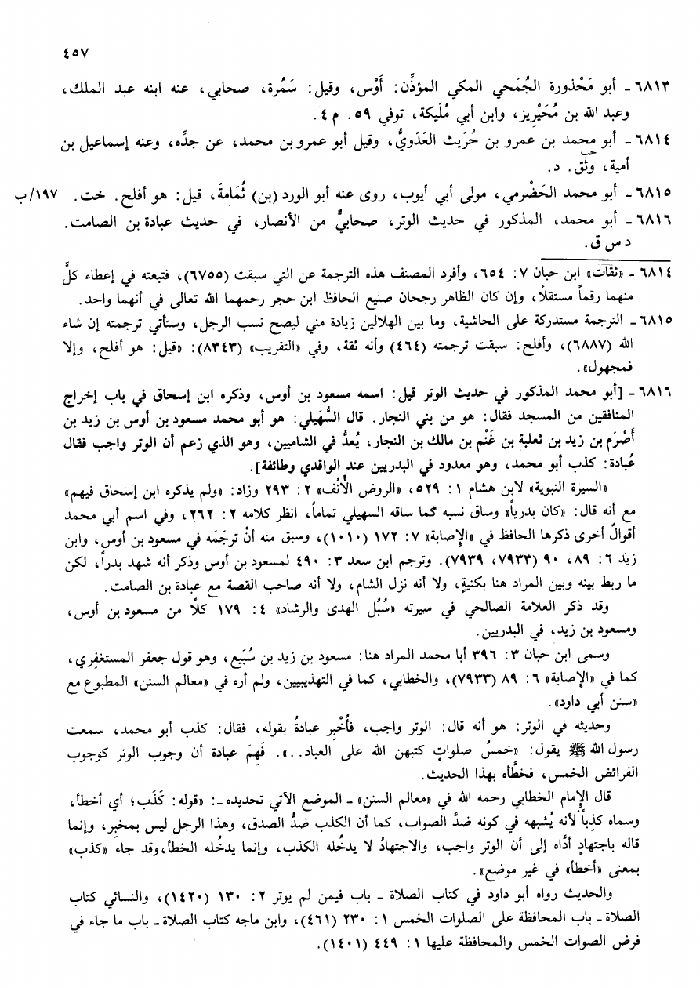 ٤٥٧
٦٨١٣ - أبو مَحْذورة الجُمَحي المكي المؤذِّن: أَوْس، وقيل: سَمُرة، صحابي، عنه ابنه عبد الملك،
وعبد الله بن مُحَيْريز، وابن أبي مُلَيكة، توفي ٥٩. م ٤.
٦٨١٤ - أبو محمد بن عمرو بن حُرَيث العَدَويُّ، وقيل أبو عمرو بن محمد، عن جدِّه، وعنه إسماعيل بن
أمية، وثِّق. د.
٦٨١٥ - أبو محمد الحَضْرمي، مولى أبي أيوب، روى عنه أبو الورد (بن) ثُمَامةَ، قيل: هو أفلح. خت. ١٩٧/ب
٦٨١٦ - أبو محمد، المذكور في حديث الوتر، صحابيٌّ من الأنصار، في حديث عبادة بن الصامت.
د س ق.
٦٨١٤ - «ثقات» ابن حبان ٧: ٦٥٤، وأفرد المصنف هذه الترجمة عن التي سبقت (٦٧٥٥)، فتبعته في إعطاء كلٍّ
منهما رقماً مستقلاً، وإن كان الظاهر رجحان صنيع الحافظ ابن حجر رحمهما الله تعالى في أنهما واحد.
٦٨١٥ - الترجمة مستدركة على الحاشية، وما بين الهلالين زيادة مني ليصح نسب الرجل، وستأتي ترجمته إن شاء
الله (٦٨٨٧)، وأفلح: سبقت ترجمته (٤٦٤) وأنه ثقة، وفي «التقريب» (٨٣٤٣): «قيل: هو أفلح، وإلا
فمجهول».
٦٨١٦ - [أبو محمد المذكور في حديث الوتر قيل: اسمه مسعود بن أوس، وذكره ابن إسحاق في باب إخراج
المنافقين من المسجد فقال: هو من بني النجار. قال السُّهَيلي: هو أبو محمد مسعود بن أوس بن زيد بن
أَصْرَم بن زيد بن ثعلبة بن غَنْم بن مالك بن النجار، يُعدُّ في الشاميين، وهو الذي زعم أن الوتر واجب فقال
عُبادة: كذب أبو محمد، وهو معدود في البدريين عند الواقدي وطائفة].
«السيرة النبوية» لابن هشام ١: ٥٢٩، «الروض الأُنُف» ٢: ٢٩٣ وزاد: «ولم يذكره ابن إسحاق فيهم»
مع أنه قال: «كان بدرياً» وساق نسبه كما ساقه السهيلي تماماً، انظر كلامه ٢: ٢٦٢، وفي اسم أبي محمد
أقوالٌ أخرى ذكرها الحافظ في «الإصابة» ٧: ١٧٢ (١٠١٠)، وسبق منه أنْ ترجَمَه في مسعود بن أوس، وابن
زيد ٦: ٨٩، ٩٠ (٧٩٣٣، ٧٩٣٩). وترجم ابن سعد ٣: ٤٩٠ لمسعود بن أوس وذكر أنه شهد بدراً، لكن
ما ربط بينه وبين المراد هنا بكنيةٍ، ولا أنه نزل الشام، ولا أنه صاحب القصة مع عبادة بن الصامت.
وقد ذكر العلامة الصالحي في سيرته «سُبُل الهدى والرشاد» ٤: ١٧٩ كلاً من مسعود بن أوس،
ومسعود بن زيد، في البدريين.
وسمى ابن حبان ٣: ٣٩٦ أبا محمد المراد هنا: مسعود بن زيد بن سُبَيع، وهو قول جعفر المستغفِري،
كما في «الإصابة» ٦: ٨٩ (٧٩٣٣)، والخطابي، كما في التهذيبين، ولم أره في «معالم السنن» المطبوع مع
«سنن أبي داود».
وحديثه في الوتر: هو أنه قال: الوتر واجب، فأُخْبِر عبادةُ بقوله، فقال: كذب أبو محمد، سمعت
رسول الله ﷺ يقول: «خمسُ صلواتٍ كتبهن الله على العباد..». فَهِمَ عبادة أن وجوب الوتر كوجوب
الفرائض الخمس، فخطَّأه بهذا الحديث.
قال الإمام الخطابي رحمه الله في «معالم السنن» - الموضع الآتي تحديده -: «قوله: كَذَب؛ أي أخطأ،
وسماه كَذِباً لأنه يُشبهه في كونه ضدَّ الصواب، كما أن الكذب ضدُّ الصدق، وهذا الرجل ليس بمخبِر، وإنما
قاله باجتهادٍ أدّاه إلى أن الوتر واجب، والاجتهادُ لا يدخُله الكذب، وإنما يدخُله الخطأ، وقد جاء «كذب»
بمعنى «أخطأ» في غير موضع».
والحديث رواه أبو داود في كتاب الصلاة - باب فيمن لم يوتر ٢: ١٣٠ (١٤٢٠)، والنسائي كتاب
الصلاة - باب المحافظة على الصلوات الخمس ١: ٢٣٠ (٤٦١)، وابن ماجه كتاب الصلاة - باب ما جاء في
فرض الصوات الخمس والمحافظة عليها ١: ٤٤٩ (١٤٠١).